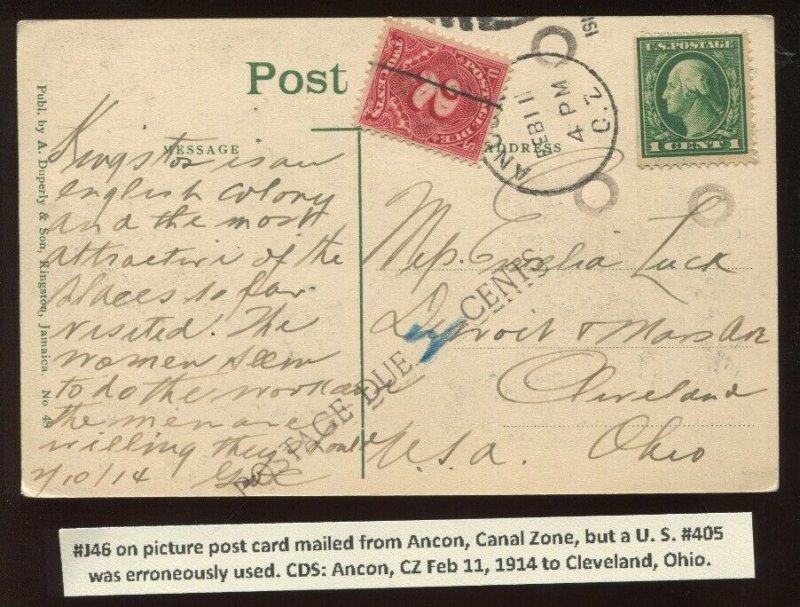 Post
MESSAGE
ADDRESS
Publ. by A. Duperly & Son, Kingston, Jamaica. No 48
POSTAGE DUE
TWO CENTS
2
ANCON
FEB 11
4 PM
C.Z.
191
U.S. POSTAGE
1 CENT 1
Kingston is an
english colony
and the most
attractive of the
places so far
visited. The
women seem
to do the work and
the men are
willing they should
2/10/14
Miss Luck
Detroit & Ave
Cleveland
U.S.A. Ohio
POSTAGE DUE CENTS
#J46 on picture post card mailed from Ancon, Canal Zone, but a U. S. #405
was erroneously used. CDS: Ancon, CZ Feb 11, 1914 to Cleveland, Ohio.